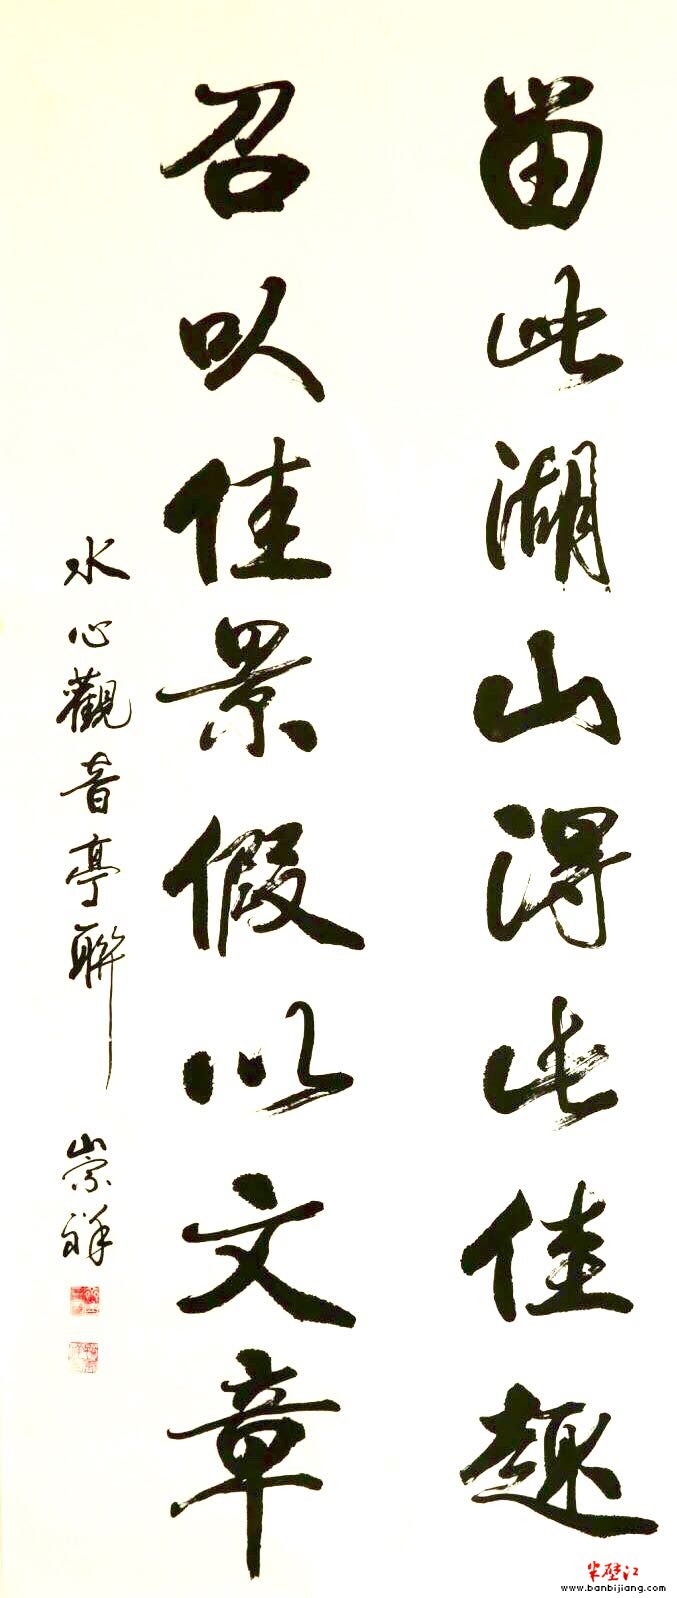 留此湖山得此佳趣
召㕥佳景假以文章
水心觀音亭聯 崇祥
半壁江
www.banbijiang.com